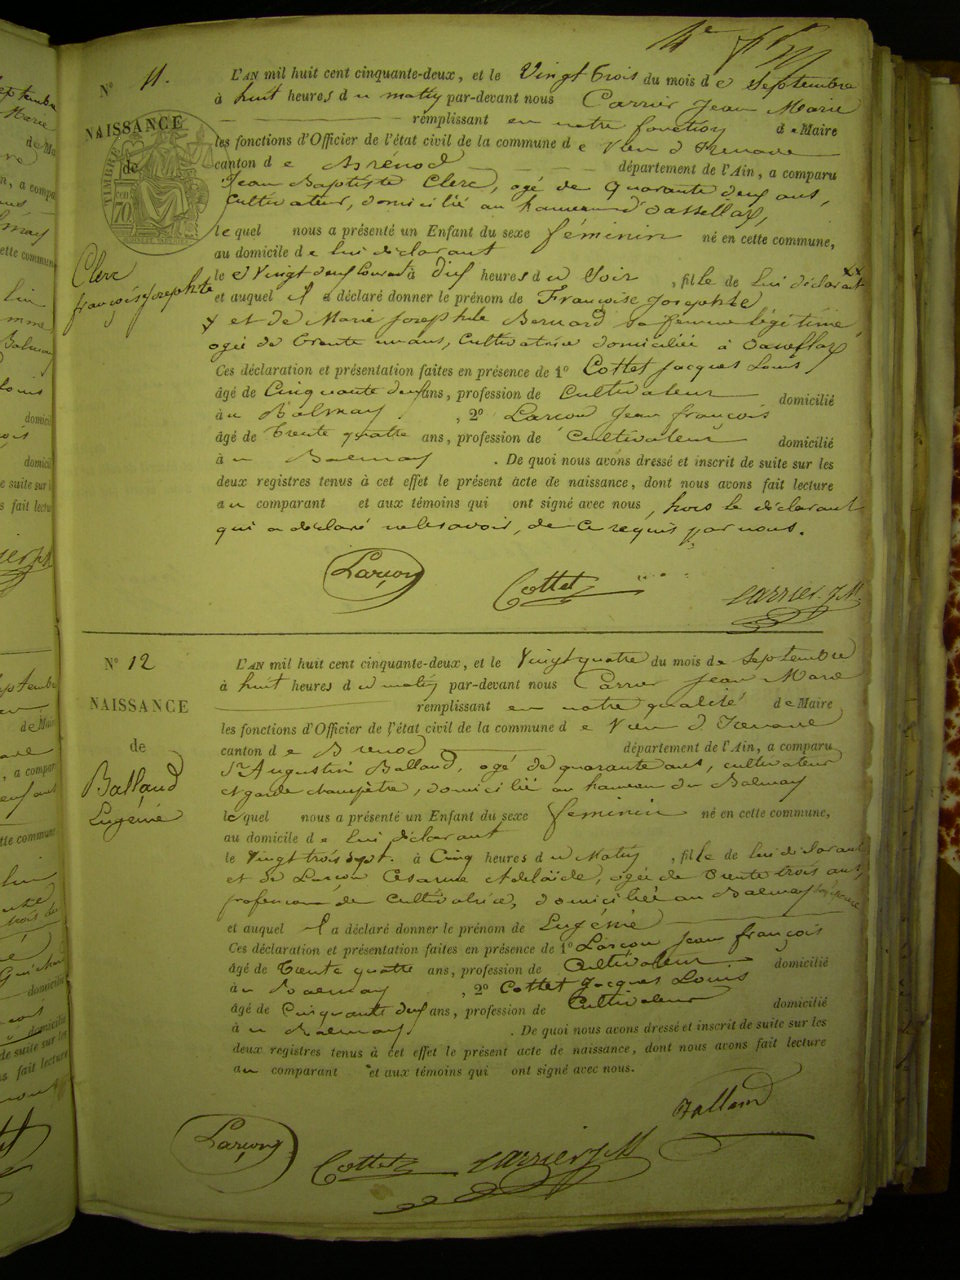 N° 11.
NAISSANCE
de
Clerc
françoise Josephte
L'AN mil huit cent cinquante-deux, et le Vingt trois du mois de Septembre
à huit heures du matin par-devant nous Carrier Jean Marie
remplissant en notre fonction de Maire
les fonctions d'Officier de l'état civil de la commune de Vieu d'Izenave
canton de Brenod département de l'Ain, a comparu
Jean Baptiste Clerc, agé de quarante deux ans,
Cultivateur, domicilié au hameau
lequel nous a présenté un Enfant du sexe féminin né en cette commune,
au domicile de lui déclarant
le Vingt deux courant à dix heures du Soir, fille de lui déclarant
et auquel il a déclaré donner le prénom de Françoise Josephte
et de Marie Josephte Bernard sa femme légitime,
agée de trente un ans, Cultivatrice domiciliée à
Ces déclaration et présentation faites en présence de 1° Cottet Jacques Louis
âgé de Cinquante deux ans, profession de Cultivateur domicilié
à u Balmay, 2° Larçon Jean françois
âgé de trente quatre ans, profession de Cultivateur domicilié
à u Balmay. De quoi nous avons dressé et inscrit de suite sur les
deux registres tenus à cet effet le présent acte de naissance, dont nous avons fait lecture
au comparant et aux témoins qui ont signé avec nous, hors le déclarant
qui a déclaré ne le savoir, de ce requis par nous.
Larçon Cottet Carrier J M
N° 12
NAISSANCE
de
Balland
Eugénie
L'AN mil huit cent cinquante-deux, et le Vingt quatre du mois de Septembre
à huit heures du matin par-devant nous Carrier Jean Marie
remplissant en notre qualité de Maire
les fonctions d'Officier de l'état civil de la commune de Vieu d'Izenave
canton de Brenod département de l'Ain, a comparu
St Augustin Balland, agé de quarante ans, cultivateur
et garde champêtre, domicilié au hameau du Balmay
lequel nous a présenté un Enfant du sexe féminin né en cette commune,
au domicile de lui déclarant
le Vingt trois sept. à Cinq heures du Matin, fille de lui déclarant
et de Larçon Césarine Adelaïde, agée de trente trois ans,
profession de Cultivatrice, domiciliée au Balmay
et auquel il a déclaré donner le prénom de Eugénie
Ces déclaration et présentation faites en présence de 1° Larçon Jean françois
âgé de trente quatre ans, profession de Cultivateur domicilié
à u Balmay, 2° Cottet Jacques Louis
âgé de Cinquante deux ans, profession de Cultivateur domicilié
à u Balmay. De quoi nous avons dressé et inscrit de suite sur les
deux registres tenus à cet effet le présent acte de naissance, dont nous avons fait lecture
au comparant et aux témoins qui ont signé avec nous.
Balland
Larçon Cottet Carrier J M